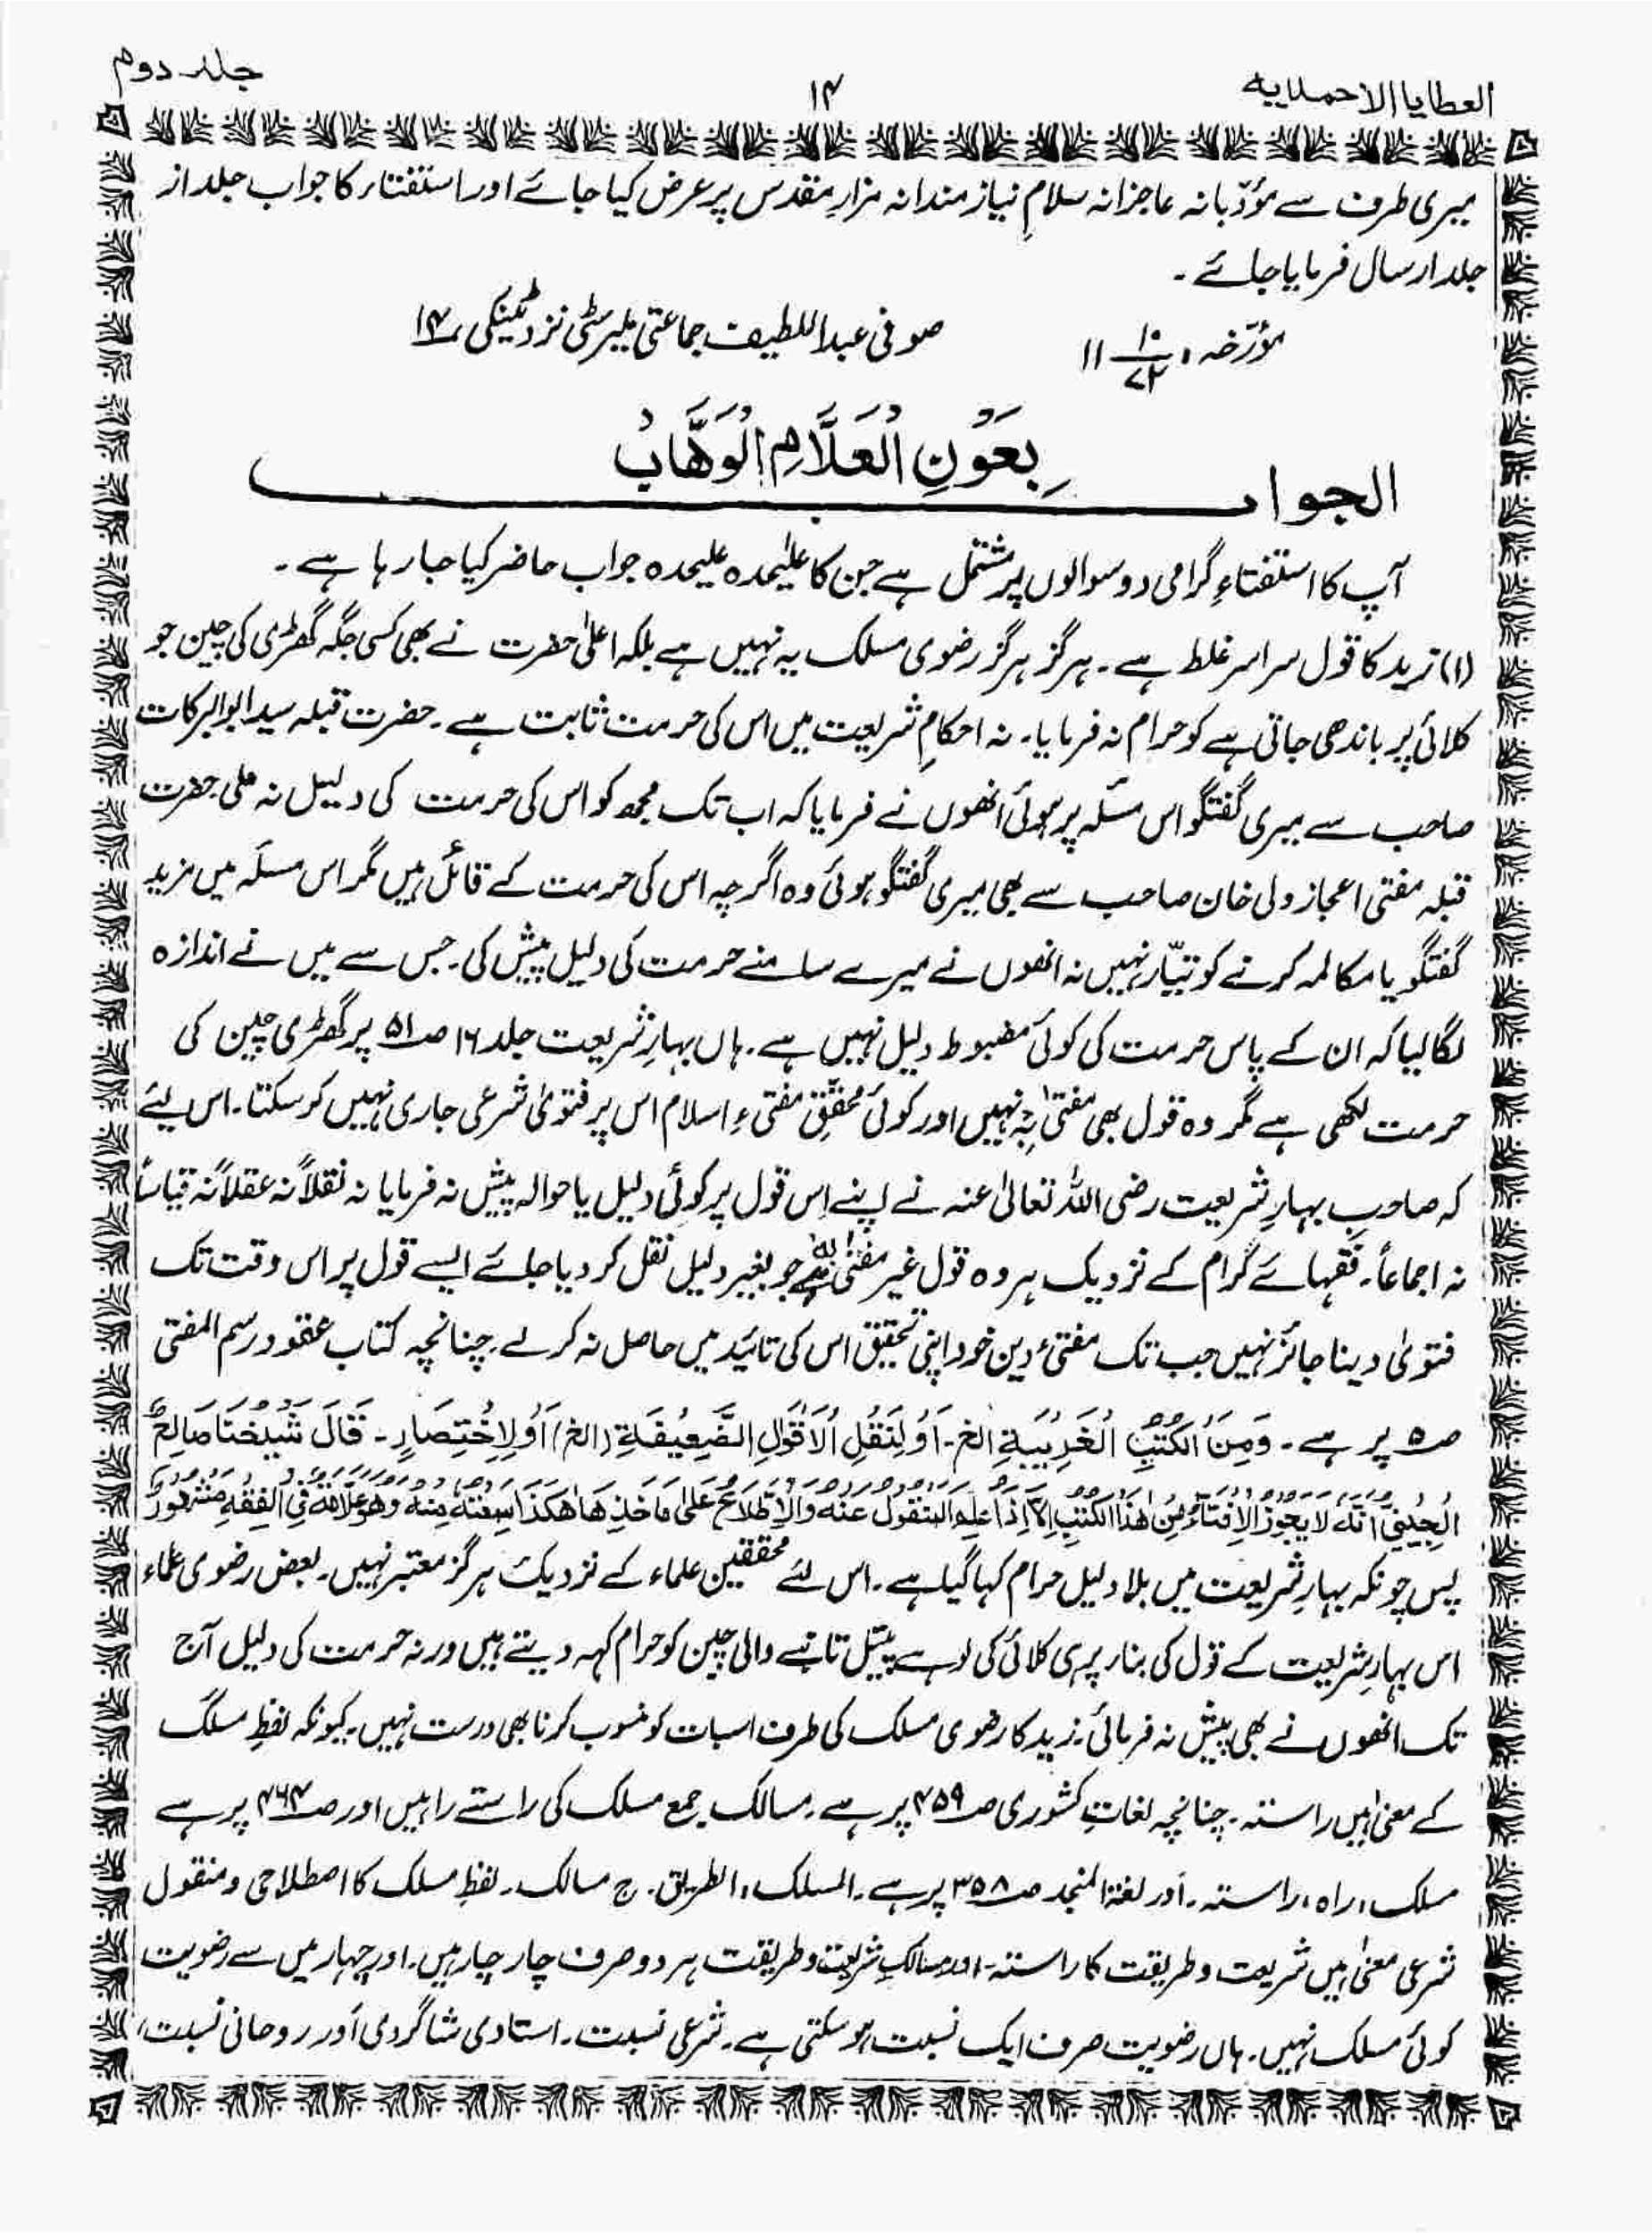 العطایا الاحمدیہ
۱۴
جلد دوم
میری طرف سے مؤدّبانہ عاجزانہ سلامِ نیاز مندانہ مزارِ مقدس پر عرض کیا جائے اور استفتاء کا جواب جلد از
جلد ارسال فرمایا جائے ۔
مؤرّخہ ۱ ۱۰/۷۲ ۱۱
صوفی عبد اللطیف جماعتی ملیر سٹی نزد ٹینکی ۱۴
بِعَوْنِ الْعَلَّامِ الْوَهَّابُ
الجواب
آپ کا استفتاءِ گرامی دو سوالوں پر مشتمل ہے جن کا علیٰحدہ علیحدہ جواب حاضر کیا جا رہا ہے ۔
(۱) زید کا قول سراسر غلط ہے ۔ ہرگز ہرگز رضوی مسلک یہ نہیں ہے بلکہ اعلیٰ حضرت نے بھی کسی جگہ گھڑی کی چین جو
کلائی پر باندھی جاتی ہے کو حرام نہ فرمایا ۔ نہ احکامِ شریعت میں اس کی حرمت ثابت ہے ۔ حضرت قبلہ سید ابو البرکات
صاحب سے میری گفتگو اس مسئلہ پر ہوئی انھوں نے فرمایا کہ اب تک مجھ کو اس کی حرمت کی دلیل نہ ملی حضرت
قبلہ مفتی اعجاز ولی خان صاحب سے بھی میری گفتگو ہوئی وہ اگرچہ اس کی حرمت کے قائل ہیں مگر اس مسئلہ میں مزید
گفتگو یا مکالمہ کرنے کو تیّار نہیں نہ انھوں نے میرے سامنے حرمت کی دلیل پیش کی ۔ جس سے میں نے اندازہ
لگا لیا کہ ان کے پاس حرمت کی کوئی مضبوط دلیل نہیں ہے ۔ ہاں بہارِ شریعت جلد ۱۶ صـ۵۱ پر گھڑی چین کی
حرمت لکھی ہے مگر وہ قول بھی مفتیٰ بِہٖ نہیں اور کوئی محقّق مفتیءِ اسلام اس پر فتویٰ شرعی جاری نہیں کر سکتا ۔ اس لئے
کہ صاحبِ بہارِ شریعت رضی اللہ تعالیٰ عنہ نے اپنے اِس قول پر کوئی دلیل یا حوالہ پیش نہ فرمایا نہ نقلاً نہ عقلاً نہ قیاساً
نہ اجماعاً ۔ فقہائے کرام کے نزدیک ہر وہ قول غیر مفتیٰ بہٖ ہے جو بغیر دلیل نقل کر دیا جائے ایسے قول پر اس وقت تک
فتویٰ دینا جائز نہیں جب تک مفتیٔ دین خود اپنی تحقیق اس کی تائید میں حاصل نہ کر لے چنانچہ کتاب عقود رسم المفتی
صـ۵ پر ہے ۔ وَمِنَ الْكُتُبِ الْغَرِيْبَةِ الخ ۔ اَوْ لِنَقْلِ الْاَقْوَالِ الضَّعِيْفَةِ (الخ) اَوْ لِاِخْتِصَارٍ ۔ قَالَ شَيْخُنَا صَالِحٌ
الْجِيْنِيْ اَنَّهُ لَا يَجُوْزُ الْاِفْتَاءُ مِنْ هٰذَا الْكُتُبِ اِلَّا اِذَا عَلِمَ الْمَنْقُوْلَ عَنْهُ وَالْاِطِّلَاعُ عَلٰى مَاخَذِهَا هٰكَذَا سَمِعْتُهُ مِنْهُ وَهُوَ عَلَّامَةٌ فِي الْفِقْهِ مَشْهُوْرٌ
پس چونکہ بہارِ شریعت میں بلا دلیل حرام کہا گیا ہے ۔ اس لئے محققین علماء کے نزدیک ہرگز معتبر نہیں ۔ بعض رضوی علماء
اس بہارِ شریعت کے قول کی بناء پر ہی کلائی کی لوہے پیتل تانبے والی چین کو حرام کہہ دیتے ہیں ورنہ حرمت کی دلیل آج
تک انھوں نے بھی پیش نہ فرمائی زید کا رضوی مسلک کی طرف اسبات کو منسوب کرنا بھی درست نہیں ۔ کیونکہ لفظِ مسلک
کے معنیٰ ہیں راستہ ۔ چنانچہ لغاتِ کشوری صـ۴۵۹ پر ہے ۔ مسالک جمع مسلک کی راستے راہیں اور صـ۴۶۴ پر ہے
مسلک ، راہ ، راستہ ۔ اور لغۃ المنجد صـ۳۵۸ پر ہے ۔ المسلک ، الطریق ۔ ج مسالک ۔ لفظِ مسلک کا اصطلاحی و منقول
شرعی معنیٰ ہیں شریعت و طریقت کا راستہ ۔ اور مسالکِ شریعت و طریقت ہر دو صرف چار چار ہیں ۔ اور چہار میں سے رضویت
کوئی مسلک نہیں ۔ ہاں رضویت صرف ایک نسبت ہو سکتی ہے ۔ شرعی نسبت ۔ استادی شاگردی اور روحانی نسبت ،